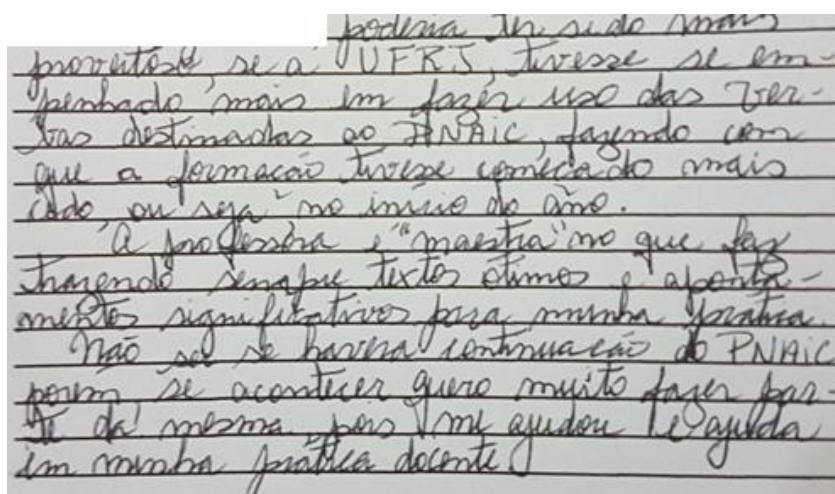 poderia ter sido mais
proveitosa, se a UFRJ, tivesse se em-
penhado mais em fazer uso das ver-
bas destinadas ao PNAIC, fazendo com
que a formação tivesse começado mais
cedo ou seja no início do ano.
A professora é "maestra" no que faz
trazendo sempre textos otimos e aponta-
mentos significativos para minha prática.
Não sei se haverá continuação do PNAIC
porem se acontecer quero muito fazer par-
te da mesma, pois me ajudou e ajuda
em minha prática docente.